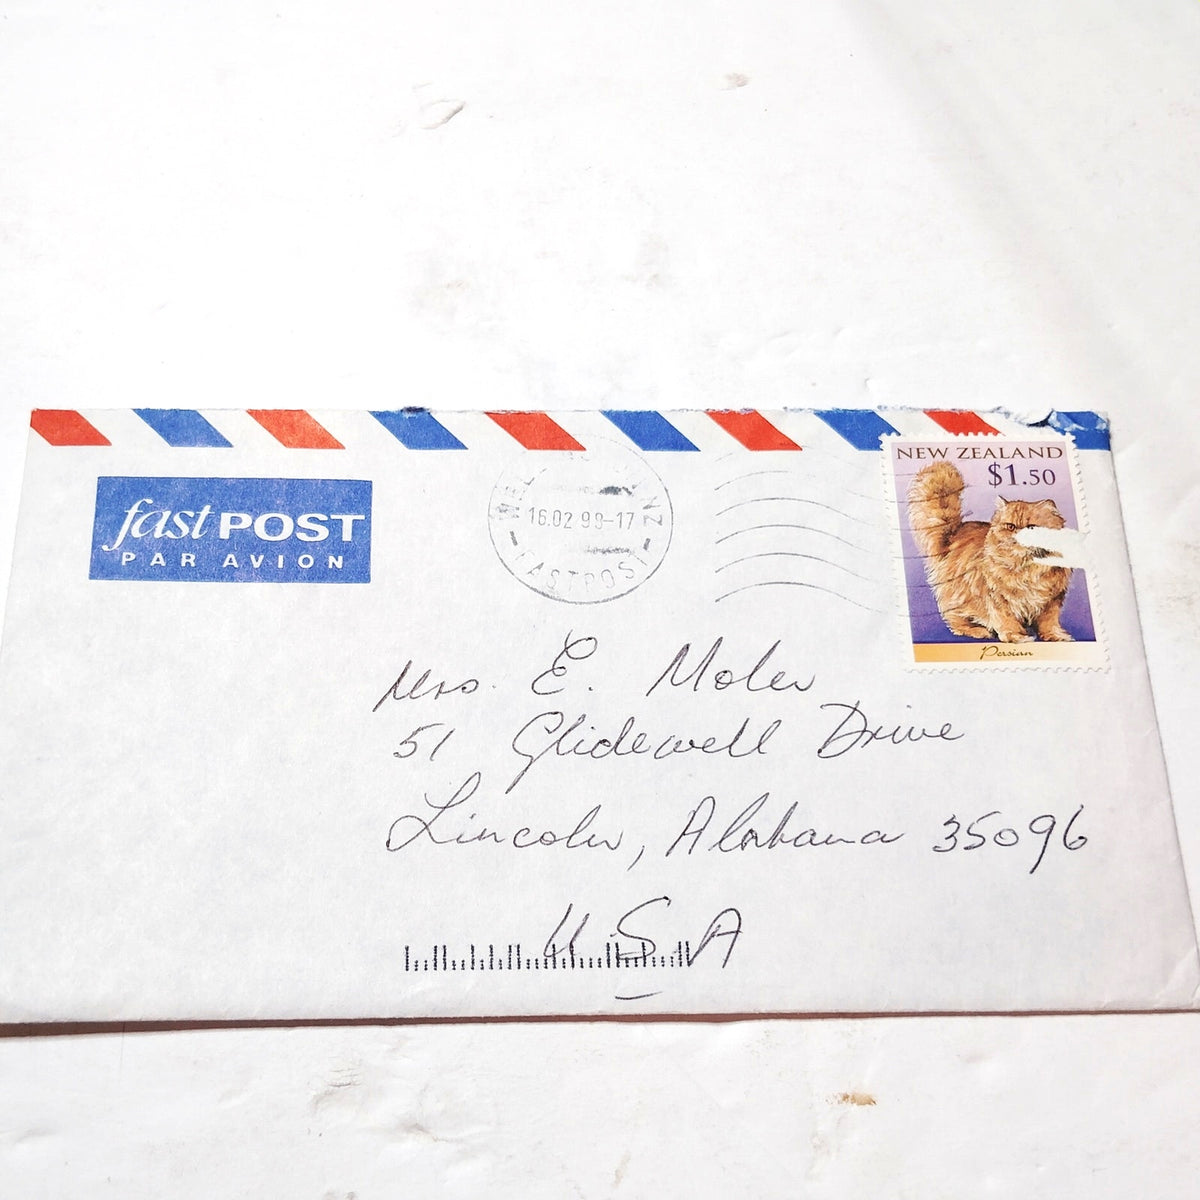 NEW ZEALAND
$1.50
fast POST
PAR AVION
NZ
16.02 98-17
FASTPOST
Persian
Mrs. E. Moler
51 Glidewell Drive
Lincoln, Alabama 35096
U.S.A